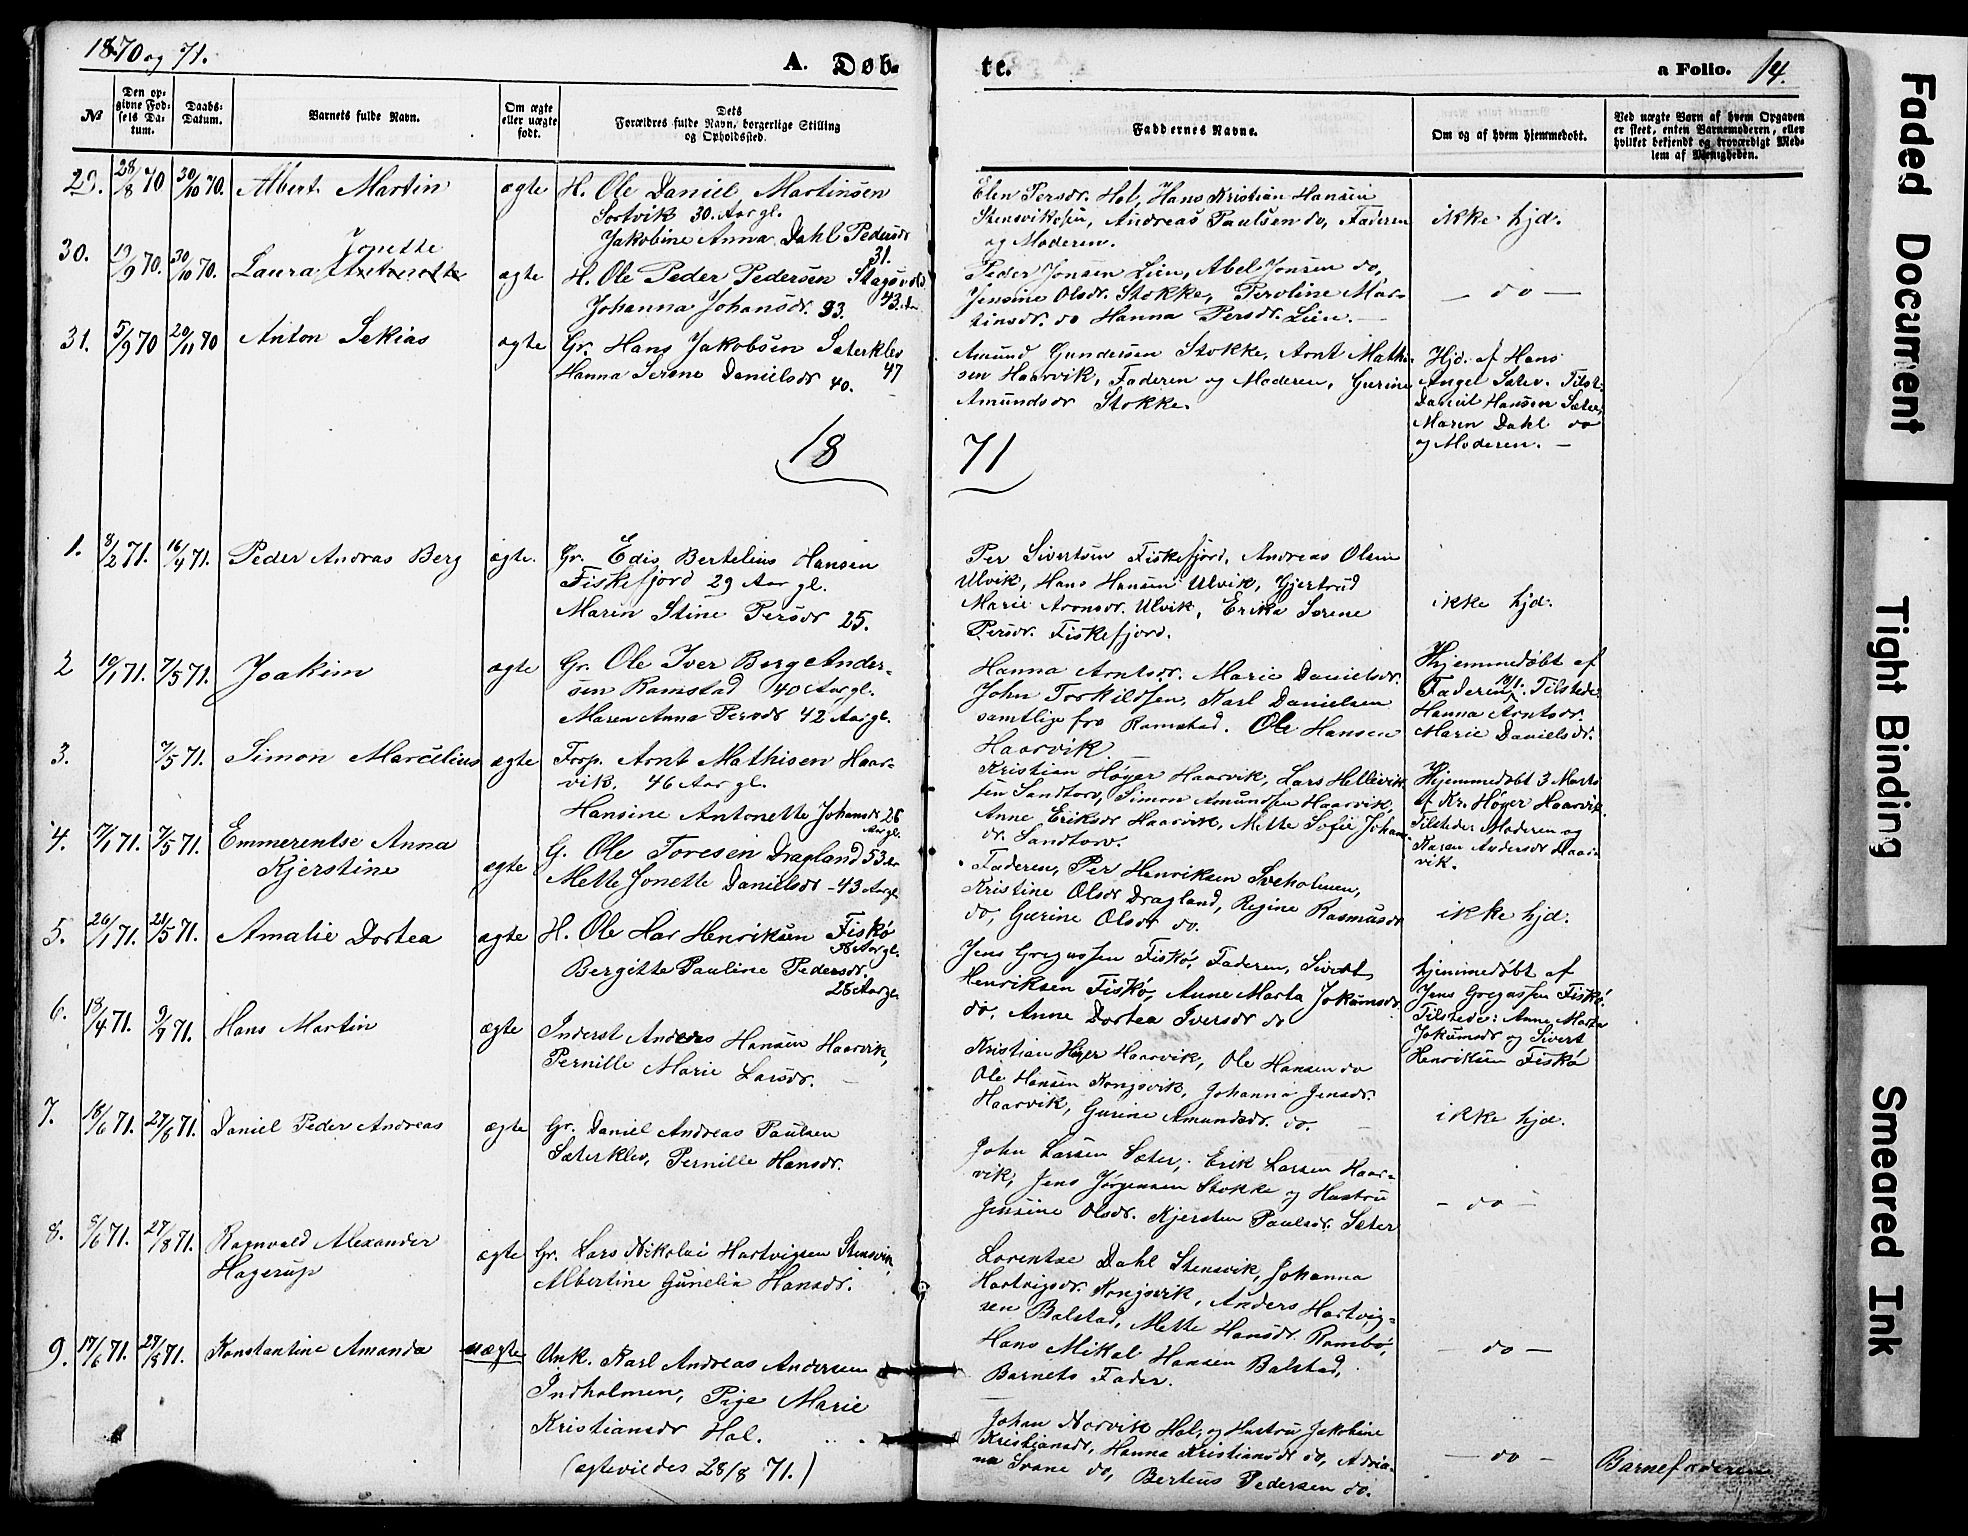 1870 og 71.
A. Døb-
te.
a Folio. 14.
No
Den op-
givne Fød-
sels Da-
tum.
Daabs-
Datum.
Barnets fulde Navn.
Om ægte
eller uægte
født.
Dets
Forældres fulde Navn, borgerlige Stilling
og Opholdssted.
Faddernes Navne.
Om og af hvem hjemmedøbt.
Ved uægte Børn af hvem Opgaven
er skeet, enten Barnemoderen, eller
hvilket bekjendt og troværdigt Med-
lem af Menigheden.
29. 28/8 70 30/10 70. Albert Martin ægte H. Ole Daniel Martinsen
Sortvik 30. Aar gl.
Jakobine Anna Dahl Pedersdr
31.
Elen Persdr. Hol, Hans Kristian Hansen
Stensviköen, Andreas Paulsen do, Faderen
og Moderen.
ikke hjd.
30. 19/9 70. 30/10 70. Laura Jonette ægte H. Ole Peder Pedersen
43.
Johanna Johansdr. 93.
Peder Jonsen Lien, Abel Jonsen do,
Jensine Olsdr. Stokke, Peroline Mar-
tinsdr. do Hanna Persdr. Lien. —
— do —
31. 5/9 70 20/11 70 Anton Sekias ægte Gr. Hans Jakobsen Sæterklev
47
Hanna Serene Danielsdr 40.
Amund Gundersen Stokke, Arnt Mathi-
sen Haarvik, Faderen og Moderen, Gurine
Amundsdr Stokke.
Hjd. af Hans
Angel Sæter. Tilst.
Daniel Hansen Sæter,
Maren Dahl do
og Moderen. —
18 71
1. 8/2 71. 16/4 71. Peder Andras Berg ægte. Gr. Edis Bertelius Hansen
Fiskefjord 29 Aar gl.
Maren Stine Persdr 25.
Per Sivertsen Fiskefjord, Andreas Olsen
Ulvik, Hans Hansen Ulvik, Gjertrud
Marie Aronsdr. Ulvik, Erika Serene
Persdr. Fiskefjord.
ikke hjd.
2 10/1 71. 7/5 71. Joakim ægte Gr. Ole Iver Berg Ander-
sen Ramstad 40 Aar gl.
Maren Anna Persdr 42 Aar gl.
Hanna Arntsdr. Marie Danielsdr.
John Torkildsen, Karl Danielsen
samtlige fra Ramstad. Ole Hansen
Haarvik —
Hjemmedøbt af
Faderen. Tilstede
Hanna Arntsdr.
Marie Danielsdr.
3. 7/5 71. Simon Marcelius ægte Forp. Arnt Mathisen Haar-
vik. 46 Aar gl.
Hansine Antonette Johansdr 26
Aar gl.
Kristian Høyer Haarvik, Lars Hellevik-
sen Sandtorv, Simon Amundsen Haarvik,
Anne Eriksdr Haarvik, Mette Sofie Johans-
dr. Sandtorv.
Hjemmedøbt 3 Marts
af Kr. Høyer Haarvik
Tilstede Moderen og
Karen Andersdr Haar-
vik.
4. 17/1 71. 7/5 71. Emmerentse Anna
Kjerstine
ægte G. Ole Toresen Dragland 53 Aar
Mette Jonette Danielsdr - 43 Aar gl
Faderen, Per Henriksen Sveholmen,
Kristine Olsdr Dragland, Regine Rasmusdr
do, Gurine Olsdr do.
ikke hjd.
5. 26/1 71. 21/5 71. Amalie Dortea ægte H. Ole Har Henriksen Fiskø
Aar gl.
Bergitte Pauline Pedersdr.
28 Aar gl
Jens Gregussen Fiskø, Faderen, Sivert
Henriksen Fiskø, Anne Marta Jokumsdr
do, Anne Dortea Iversdr do
hjemmedøbt af
Jens Gregussen Fiskø.
Tilstede: Anne Marta
Jokumsdr og Sivert
Henriksen Fiskø
6. 18/4 71. 9/7 71. Hans Martin ægte Inderst Anders Hansen Haarvik,
Pernille Marie Larsdr. —
Kristian Høyer Haarvik, Ole Hansen do
Ole Hansen Kongsvik, Johanna Jensdr.
Haarvik, Gurine Amundsdr. do. —
ikke hjd.
7. 18/6 71. 27/8 71. Daniel Peder Andreas ægte Gr. Daniel Andreas Paulsen
Sæterklev, Pernille Hansdr.
John Larsen Sæter, Erik Larsen Haar-
vik, Jens Jørgensen Stokke og Hustru
Jensine Olsdr. Kjersten Paulsdr. Sæter
— do —
8. 5/6 71. 27/8 71. Ragnvald Alexander
Hagerup
ægte Gr. Lars Nikolai Hartvigsen Stensvik,
Albertine Gunelia Hansdr.
Lorentse Dahl Stensvik, Johanna
Hartvigsdr. Kongsvik, Anders Hartvig-
sen Balstad, Mette Hansdr. Rambø,
Hans Mikal Hansen Balstad,
Barnets Fader.
— do —
9. 17/6 71. 27/8 71. Konstantine Amanda uægte Unk. Karl Andreas Andersen
Indholmen, Pige Marie
Kristiansdr Hol.
(ægteviedes 28/8 71.)
Johan Norvik Hol, og Hustru Jakobine
Kristiansdr, Hanna Kristiansdr do, Adria-
na Svane do, Berteus Pedersen do.
— do —
Barnefaderen
Faded Document
Tight Binding
Smeared Ink